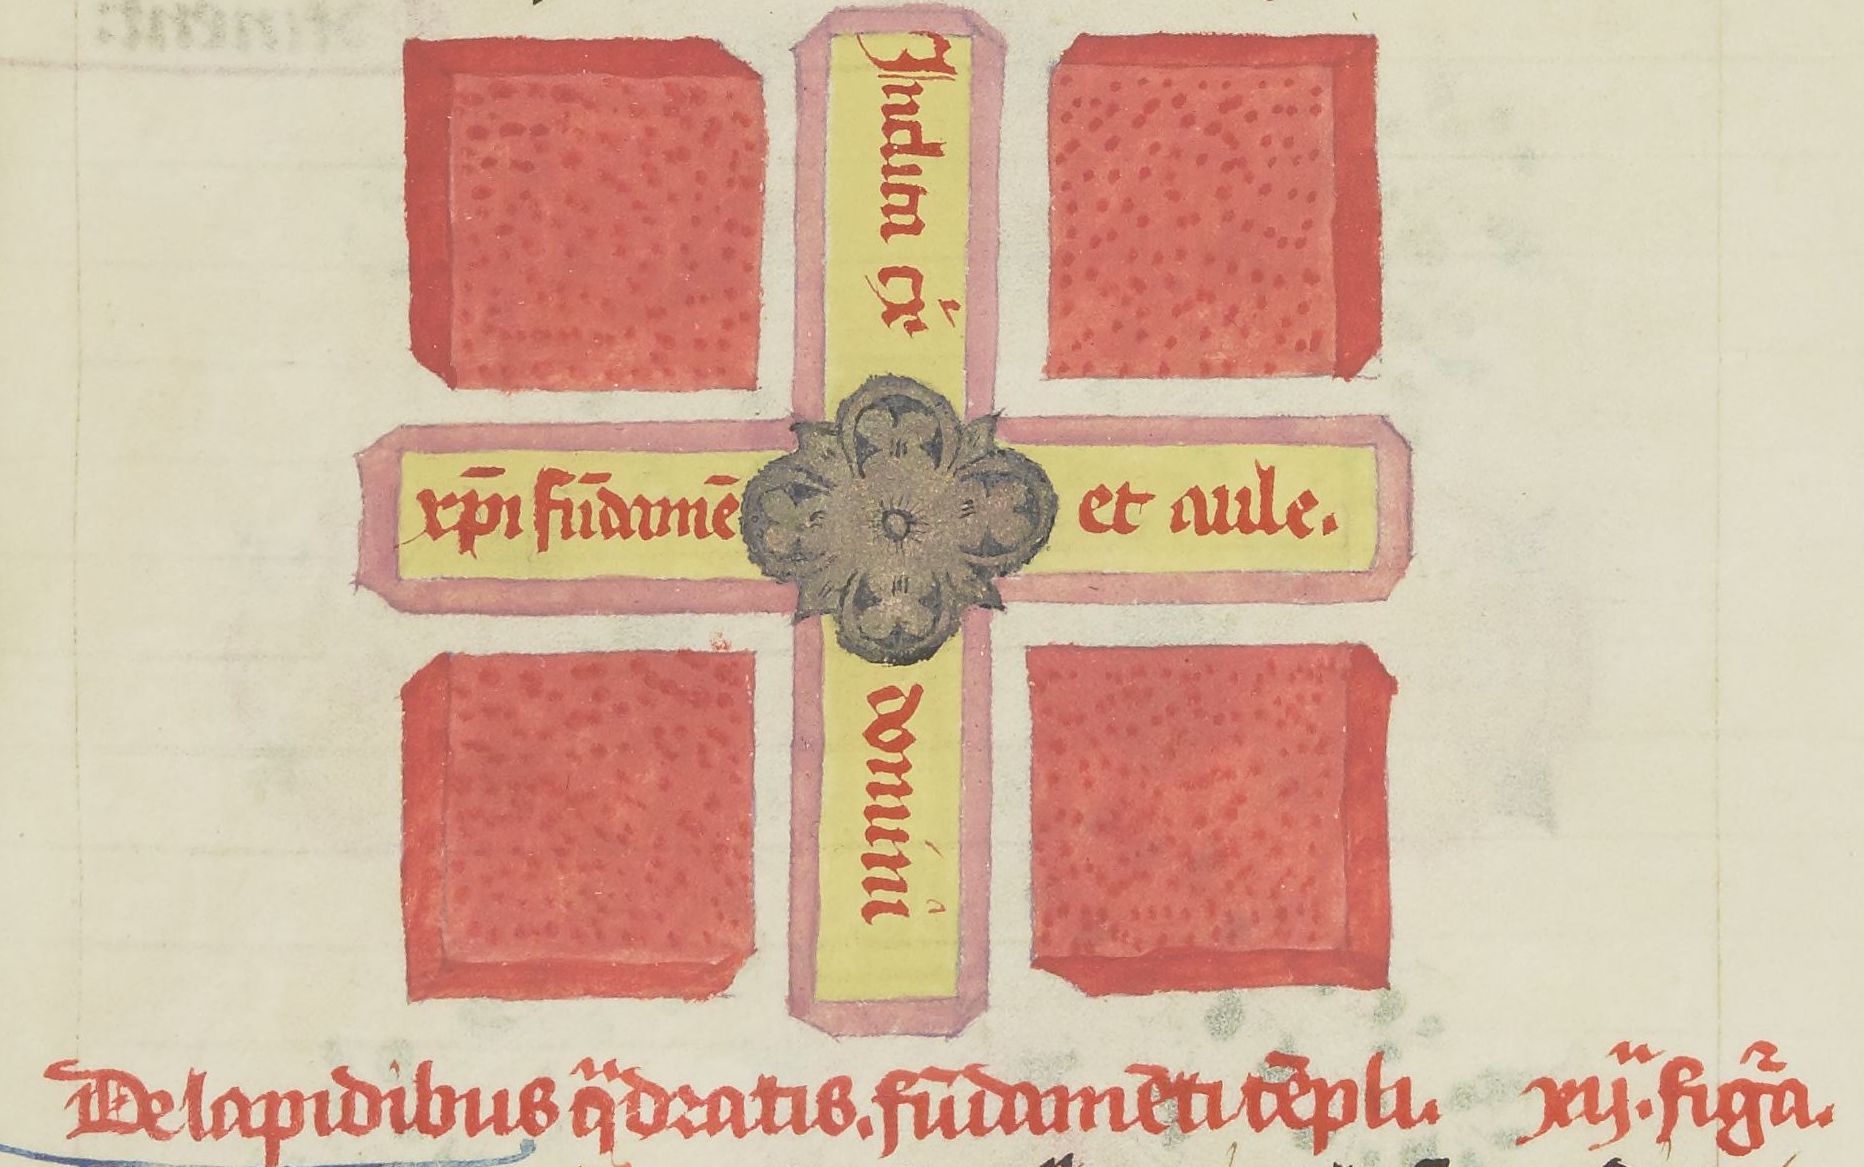 Inclita cr̃
xp̄i fūdamē et aule.
domini
De lapidibus qᵃdratis. fūdamēti tēpli. xijᵃ. figᷣa.